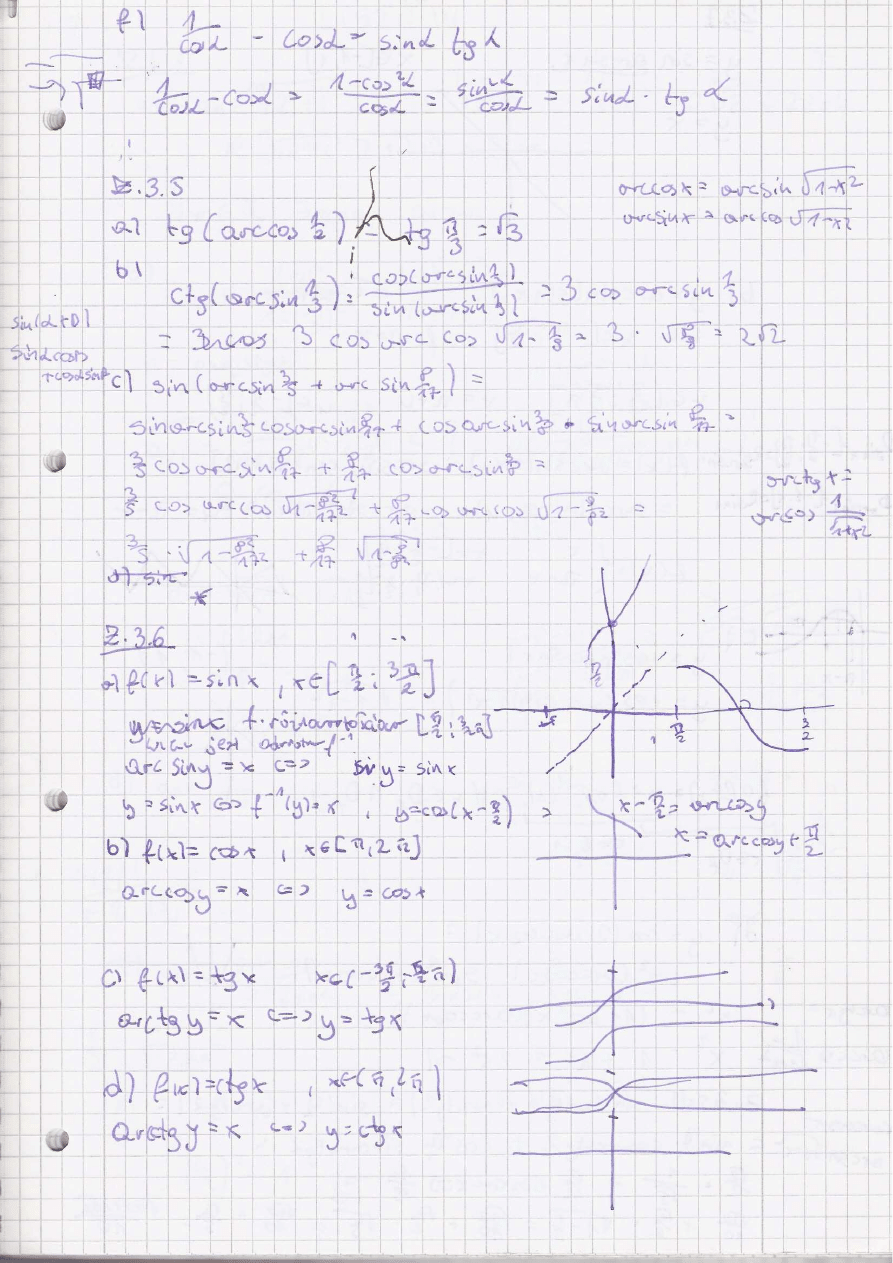 f) 1/cosα - cosα = sinα tg α
1/cosα - cosα = 1-cos²α/cosα = sin²α/cosα = sinα · tg α
Z.3.5
arccos x = arcsin √1-x²
arcsin x = arccos √1-x²
a) tg (arccos 1/2) = tg π/3 = √3
b)
ctg(arcsin 1/3) = cos(arcsin 1/3)/sin(arcsin 1/3) = 3 cos arcsin 1/3
= 3 cos arc cos √1-1/9 = 3 · √8/9 = 2√2
c) sin(arcsin 3/5 + arc sin 8/17) =
sin arcsin 3/5 cos arcsin 8/17 + cos arcsin 3/5 · sin arcsin 8/17 =
3/5 cos arcsin 8/17 + 8/17 cos arcsin 3/5 =
arctg x =
arccos 1/√1+x²
3/5 cos arccos √1-8²/17² + 8/17 cos arccos √1- =
3/5 · √1-8²/17² + 8/17 √1-
d) sin
Z.3.6
a) f(x) = sin x , x∈[π/2 ; 3π/2]
y=sinx f. [π/2 ; 3/2π]
jest f⁻¹
arc sin y = x <=> y = sin x
y = sinx <=> f⁻¹(y)=x , y=cos(x-π/2) =
x - π/2 = arccos y
x = arccos y + π/2
b) f(x) = cos x , x∈[π, 2π]
arccos y = x <=> y = cos x
c) f(x) = tg x x∈(-3π/2 ; π)
arctg y = x <=> y = tg x
d) f(x) = ctg x , x∈(π, 2π)
arcctg y = x <=> y = ctg x